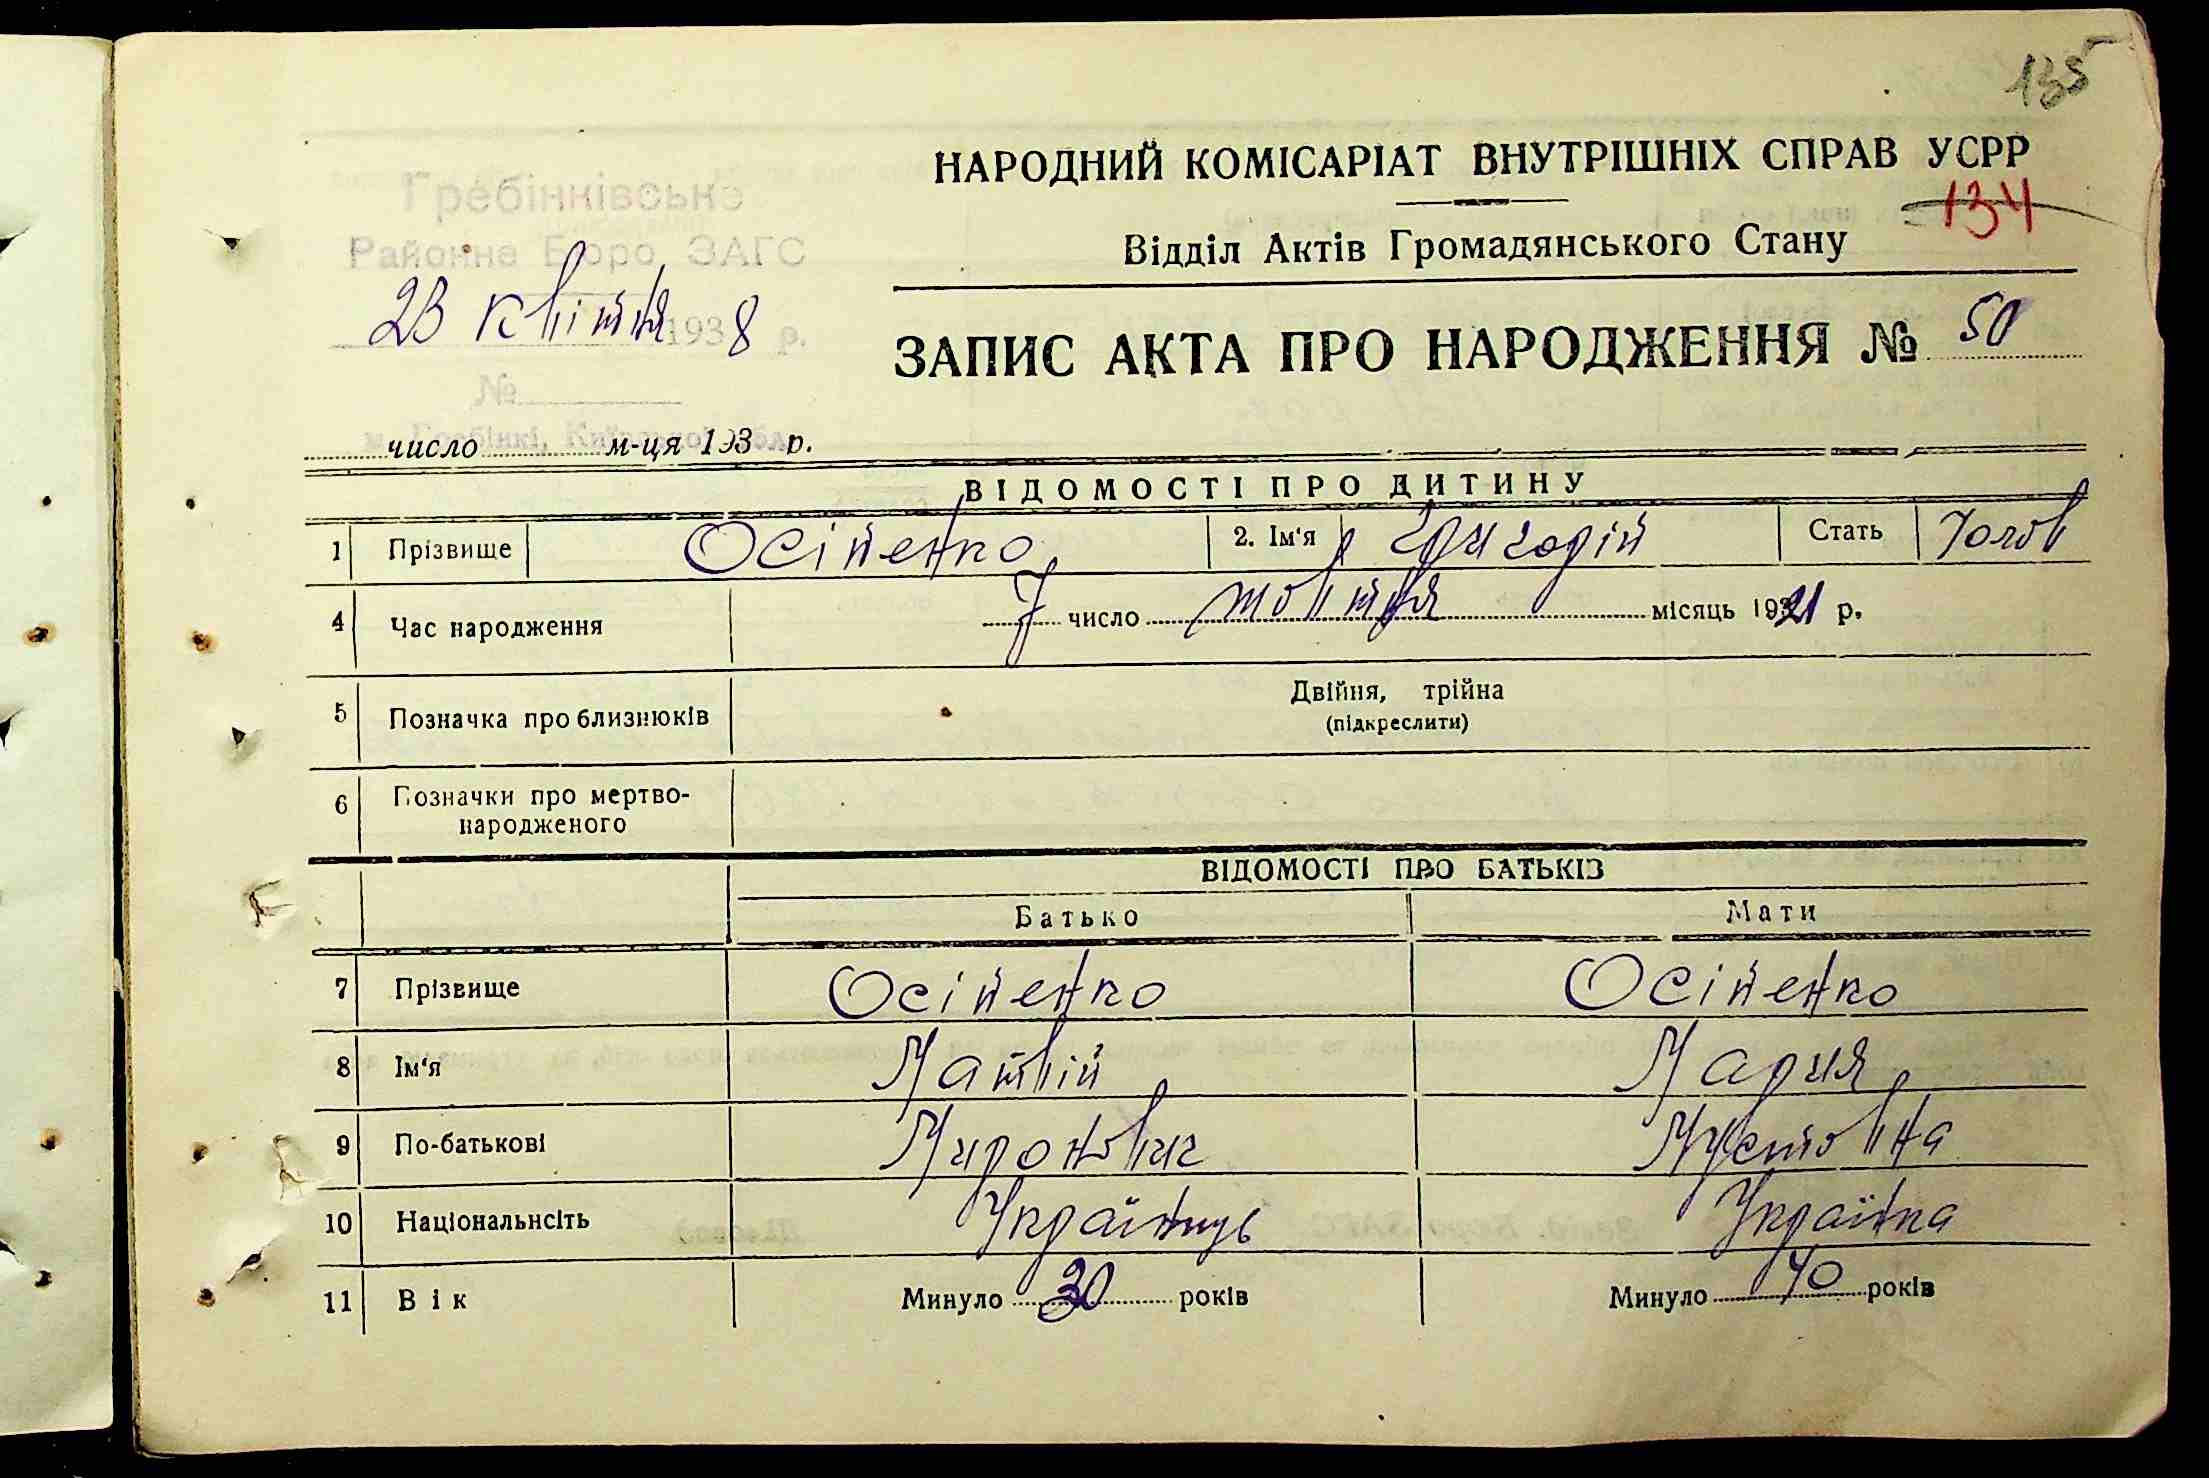 135
НАРОДНИЙ КОМІСАРІАТ ВНУТРІШНІХ СПРАВ УСРР
134
Відділ Актів Громадянського Стану
Гребінківське
Районне Бюро ЗАГС
23 квітня 1938 р.
№
м. Гребінкі, Київської обл.
ЗАПИС АКТА ПРО НАРОДЖЕННЯ № 50
число м-ця 193 р.
ВІДОМОСТІ ПРО ДИТИНУ
1 Прізвище Осіпенко 2. Ім'я Григорій Стать Чолов
4 Час народження 7 число жовтня місяць 1921 р.
5 Позначка про близнюків Двійня, трійна
(підкреслити)
6 Позначки про мертво-
народженого
ВІДОМОСТІ ПРО БАТЬКІВ
Батько Мати
7 Прізвище Осіпенко Осіпенко
8 Ім'я Матвій Мария
9 По-батькові Миронович
10 Національнсіть Українець Українка
11 Вік Минуло 30 років Минуло 40 років